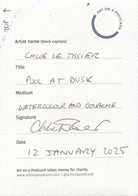 TOP
ART ON A POSTCARD
Artist name (block capitals)
CHLOE LE TISSIER
Title
POOL AT DUSK
Medium
WATERCOLOUR AND GOUACHE
Signature
Date
12 JANUARY 2025
Art on a Postcard raises money for charity
www.artonapostcard.com / @artonapostcard